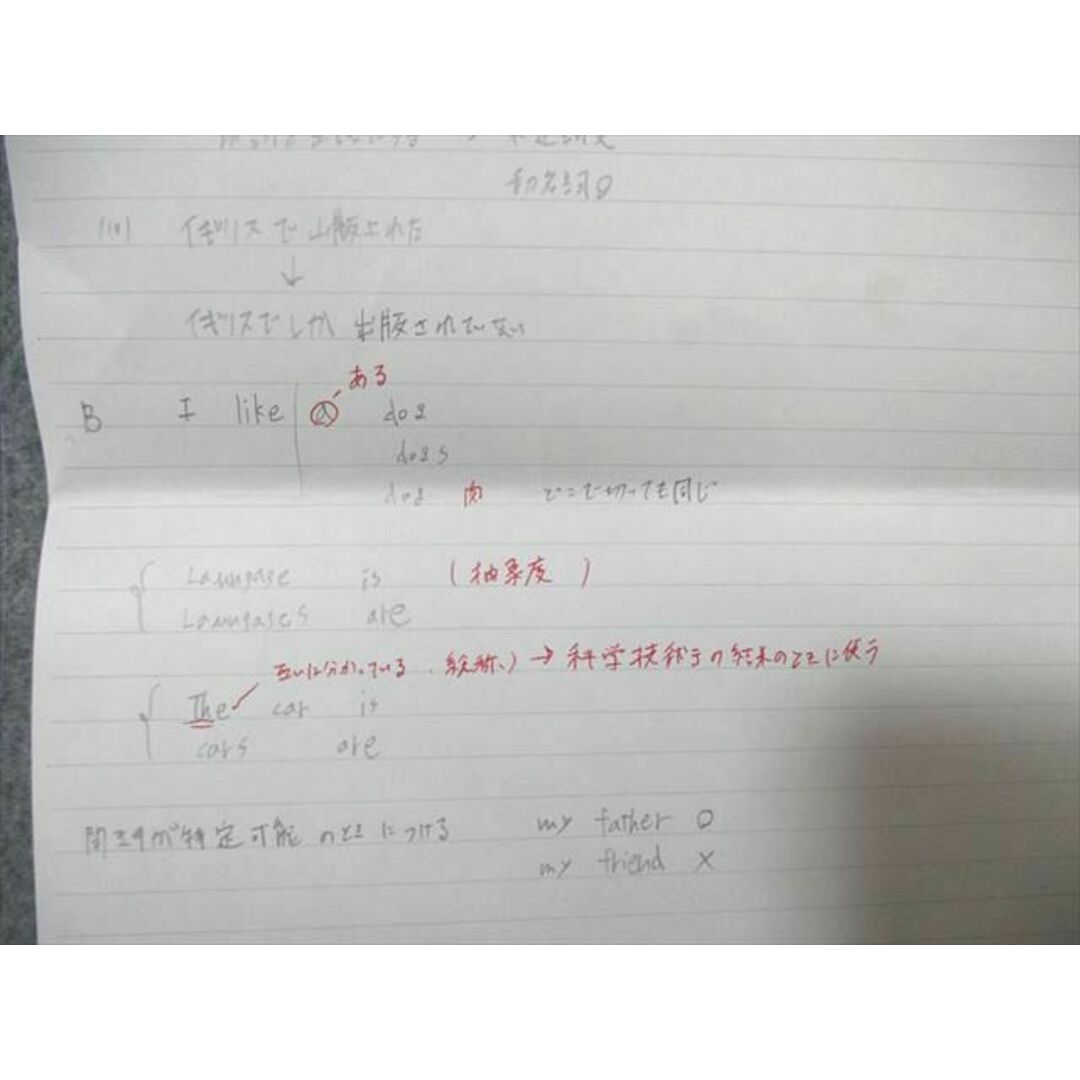 動名詞○
(10) イギリスで出版された
↓
イギリスでしか出版されていない
ある
B I like a dog
dogs
dog 肉 どこで切っても同じ
Launguage is (抽象度 )
Launguages are
互いに分かっている 総称 → 科学技術 の結果のときに使う
The car is
cars are
聞き手が特定可能のときにつける my father ○
my friend ×